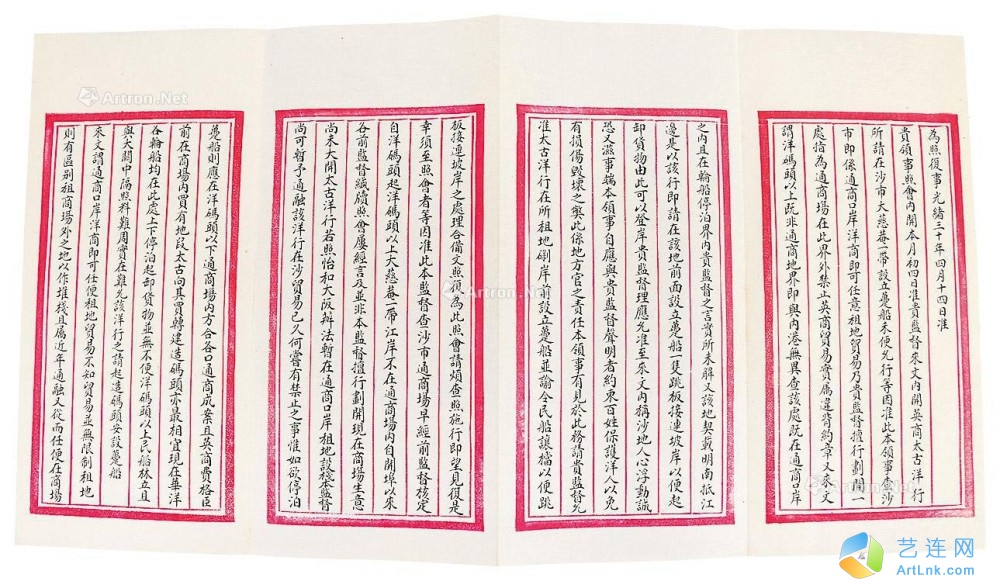 為照復事光緒三十年四月十四日准
貴領事照會內開本月初四日准貴監督來文內開英商太古洋行
所請在沙市大慈菴一帶設立躉船未便允行等因准此本領事查沙
市即係通商口岸洋商即可任意租地貿易乃貴監督擅行劃開一
處指為通商場在此界外禁止英商貿易實属違背約章又來文
謂洋碼頭以上既非通商地界即與內港無異查該處既在通商口岸
之內且在輪船停泊界內貴監督之言實所未解又該地契載明南抵江
邊是以該行即請在該地前面設立躉船一隻跳板接連坡岸以便起
卸貨物由此可以登岸貴監督理應允准至來文內稱沙地人心浮動誠
恐又滋事端本領事自應與貴監督聲明者約束百姓保護洋人以免
有損傷毀壞之獘此係地方官之責任本領事有見於此務請貴監督允
准太古洋行在所租地劄岸前設立躉船並諭令民船讓檔以便跳
板接連坡岸之處理合備文照復為此照會請煩查照施行即望見復是
幸須至照會者等因准此本監督查沙市通商場早經前監督核定
自洋碼頭起洋碼頭以上大慈菴一帶江岸不在通商場內自開埠以來
各前監督纔續照會屢經言及並非本監督擅行劃開現在商場生意
尚未大開太古洋行若照怡和大阪辦法暫在通商口岸租地設棧本監督
尚可暫予通融該洋行在沙貿易已久何嘗有禁止之事惟如欲停泊
躉船則應在洋碼頭以下通商場內方合各口通商成案且英商費格臣
前在商場內買有地段太古向其買轉建造碼頭亦最相宜現在華洋
各輪船均在此處上下停泊起卸貨物並無不便洋碼頭以上民船林立且
與大關中隔照料難周實在難允該洋行之請起造碼頭安設躉船
來文謂通商口岸洋商即可任便租地貿易不知貿易並無限制租地
則有區别租商場外之地以作堆棧且属近年通融又從而任便在商場
Artron.Net
Artron.Net
艺连网
ArtLnk.com